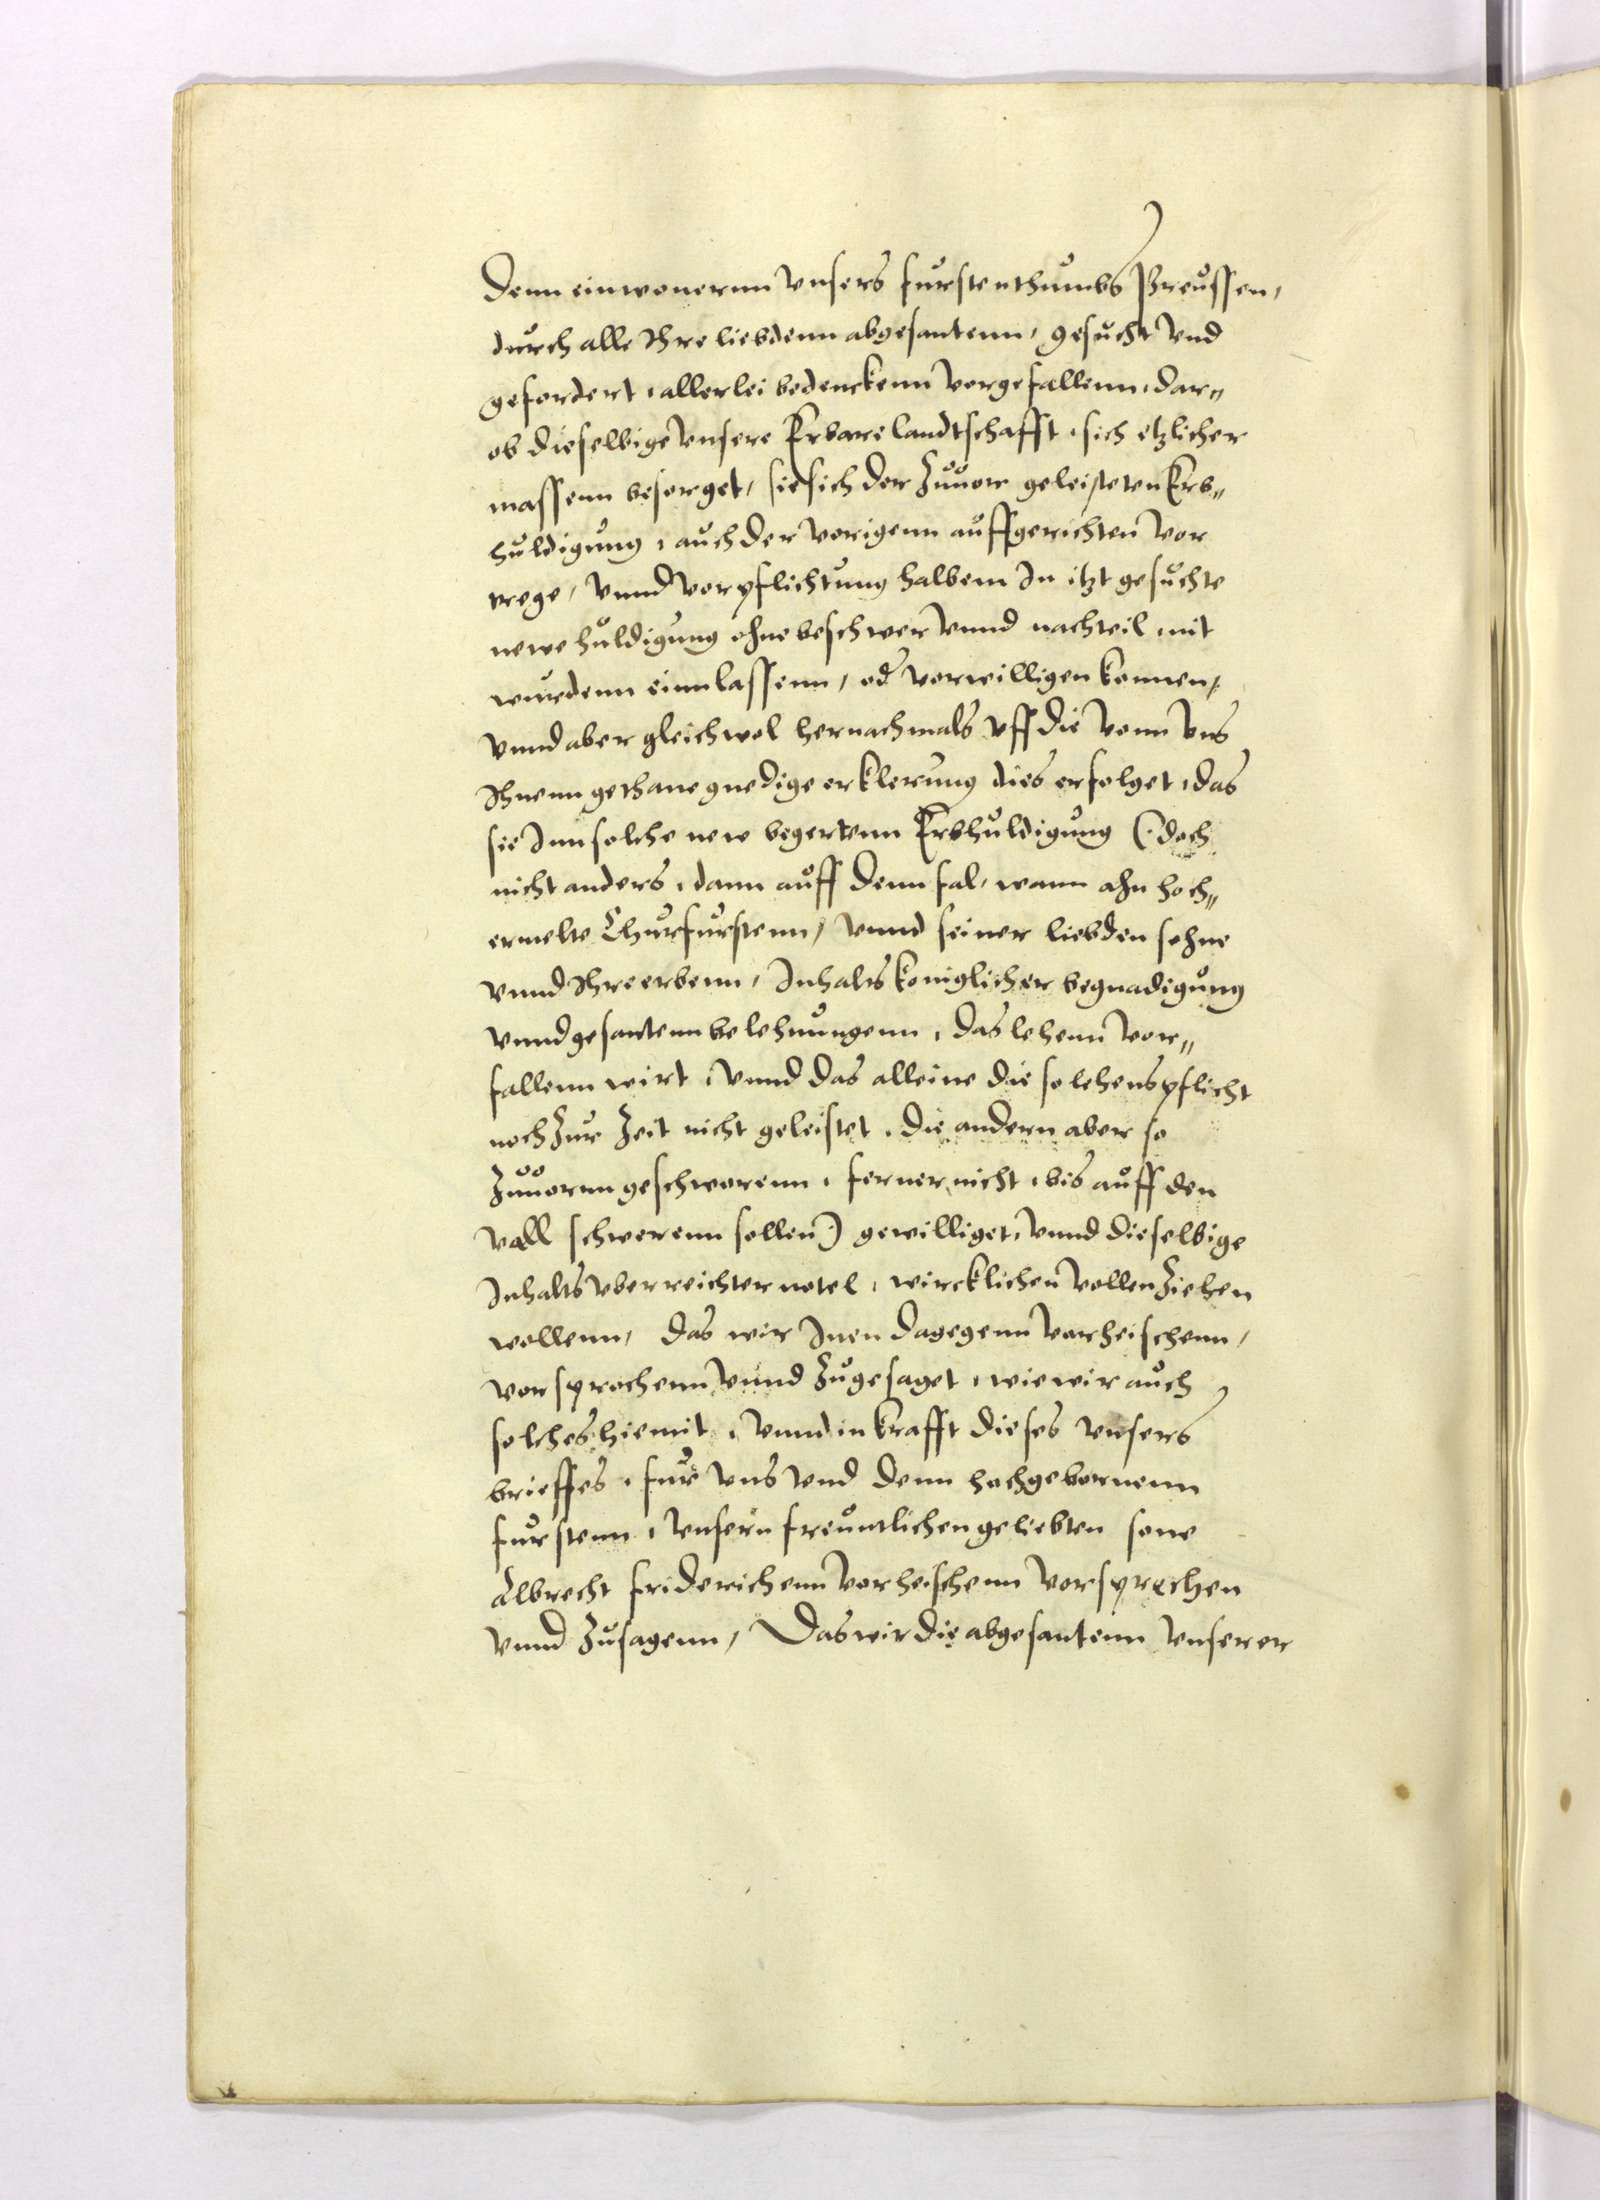 Denn einwonernn Vnsers furstenthumbs Preussen,
durch alle Ihre liebdenn abgesantenn, gesucht Vnd
gefordert, allerlei bedenckenn Vorgefallenn, dar„
ob dieselbige Vnsere Erbare landtschafft, sich etzlicher
massenn besorget, sie sich der Zuuor geleisteten Erb„
huldigung, auch der Vorigenn auffgerichten Vor
trege, Vnnd Vorpflichtung halbenn In itzt gesuchte
newe huldigung ohne beschwer Vnnd nachteil, nit
wurdenn einnlassenn, oder Vorwilligen konnen,
Vnnd aber gleichwol hernachmals Vff die Vonn Vns
Ihnenn gethane gnedige erklerung dies erfolget, das
sie Inn solche new begertenn Erbhuldigung (: doch
nicht anders, dann auff denn fal, wann ahn hoch„
ermelte Churfurstenn, Vnnd seiner liebden sohne
Vnnd Ihre erbenn, Inhalts koniglicher begnadigung
Vnnd gesantenn belehnungenn, das lehenn Vor„
fallenn wirt, Vnnd das alleine die so lehenspflicht
noch Zur Zeit nicht geleistet, die andern aber so
Zuuornn geschworenn, ferner nicht, bis auff den
Vall schwerenn sollen:) gewilliget, Vnnd dieselbige
Inhalts Vberreichter notel, wircklichen VollenZiehen
wollenn, das wir Inen dagegenn Vorheischenn,
Vorsprochenn Vnnd Zugesaget, wie wir auch
solches hiemit, Vnnd in krafft dieses Vnsers
brieffes, fur Vns Vnd denn hochgebornenn
furstenn, Vnsern freuntlichen geliebten sone
Albrecht friderichenn Vorheischenn Vorsprechen
Vnnd Zusagenn, Das wir die abgesantenn Vnserer